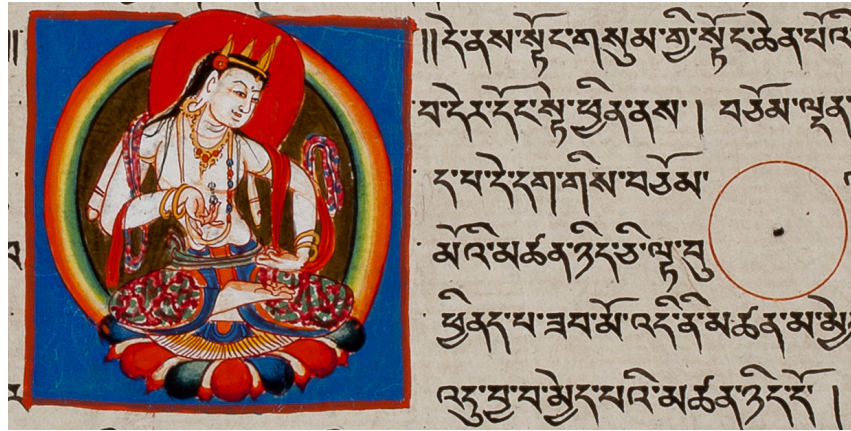 །།དེ་ནས་སྟོང་གསུམ་གྱི་སྟོང་ཆེན་པོའི
བ་དེར་དོང་སྟེ་ཕྱིན་ནས་། བཅོམ་ལྡན་
ད་པ་དེ་དག་གིས་བཅོམ་
མོའི་མཚན་ཉིད་ཅི་ལྟ་བུ
ཕྱིནད་པ་ཟབ་མོ་འདི་ནི་མཚན་མ་མྱེ
འདུ་བྱ་བ་མྱེད་པའི་མཚན་ཉིད་དོ །